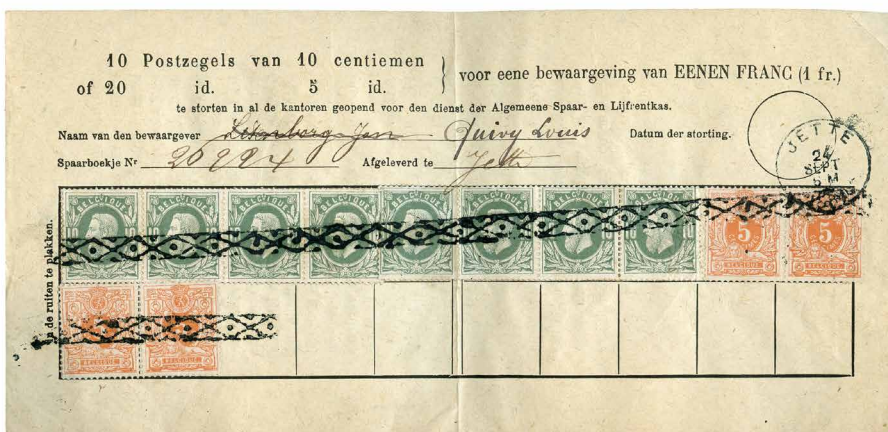 10 Postzegels van 10 centiemen
of 20 id. 5 id.
} voor eene bewaargeving van EENEN FRANC (1 fr.)
te storten in al de kantoren geopend voor den dienst der Algemeene Spaar- en Lijfrentkas.
Naam van den bewaargever Quivy Louis Datum der storting.
Spaarboekje Nr 20224 Afgeleverd te Jette
JETTE
24
SEPT
5 M
In de ruiten te plakken.
BELGIQUE BELGIQUE BELGIQUE BELGIQUE BELGIQUE BELGIQUE BELGIQUE BELGIQUE
5 5
BELGIQUE BELGIQUE
BELGIQUE BELGIQUE